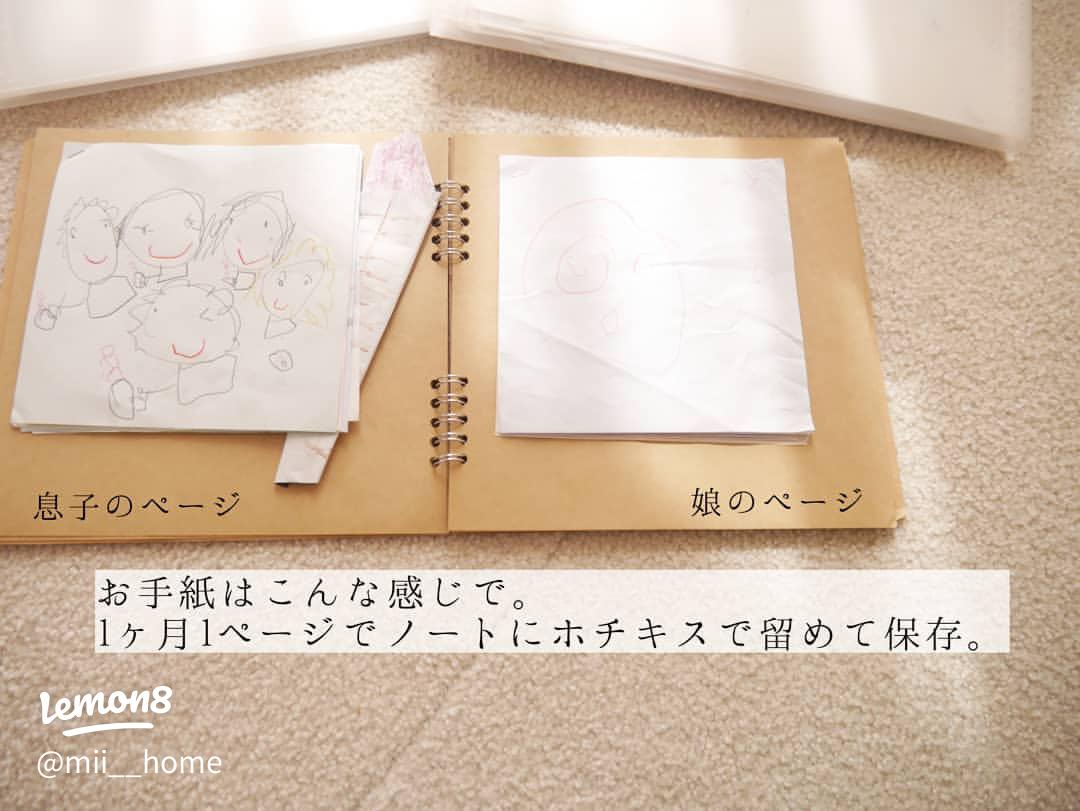 息子のページ
娘のページ
お手紙はこんな感じで。
1ヶ月1ページでノートにホチキスで留めて保存。
Lemon8
@mii__home